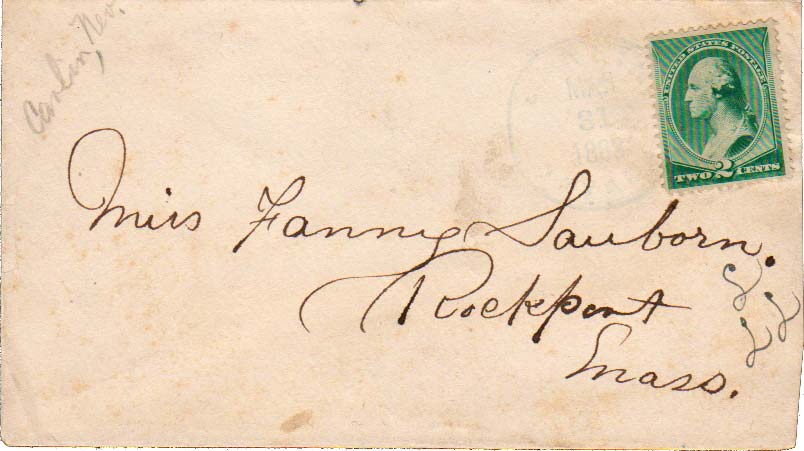 Carlin, Nev.
MAR
31
188
UNITED STATES POSTAGE
TWO 2 CENTS
Miss Fanny Sanborn.
Rockport
Mass.